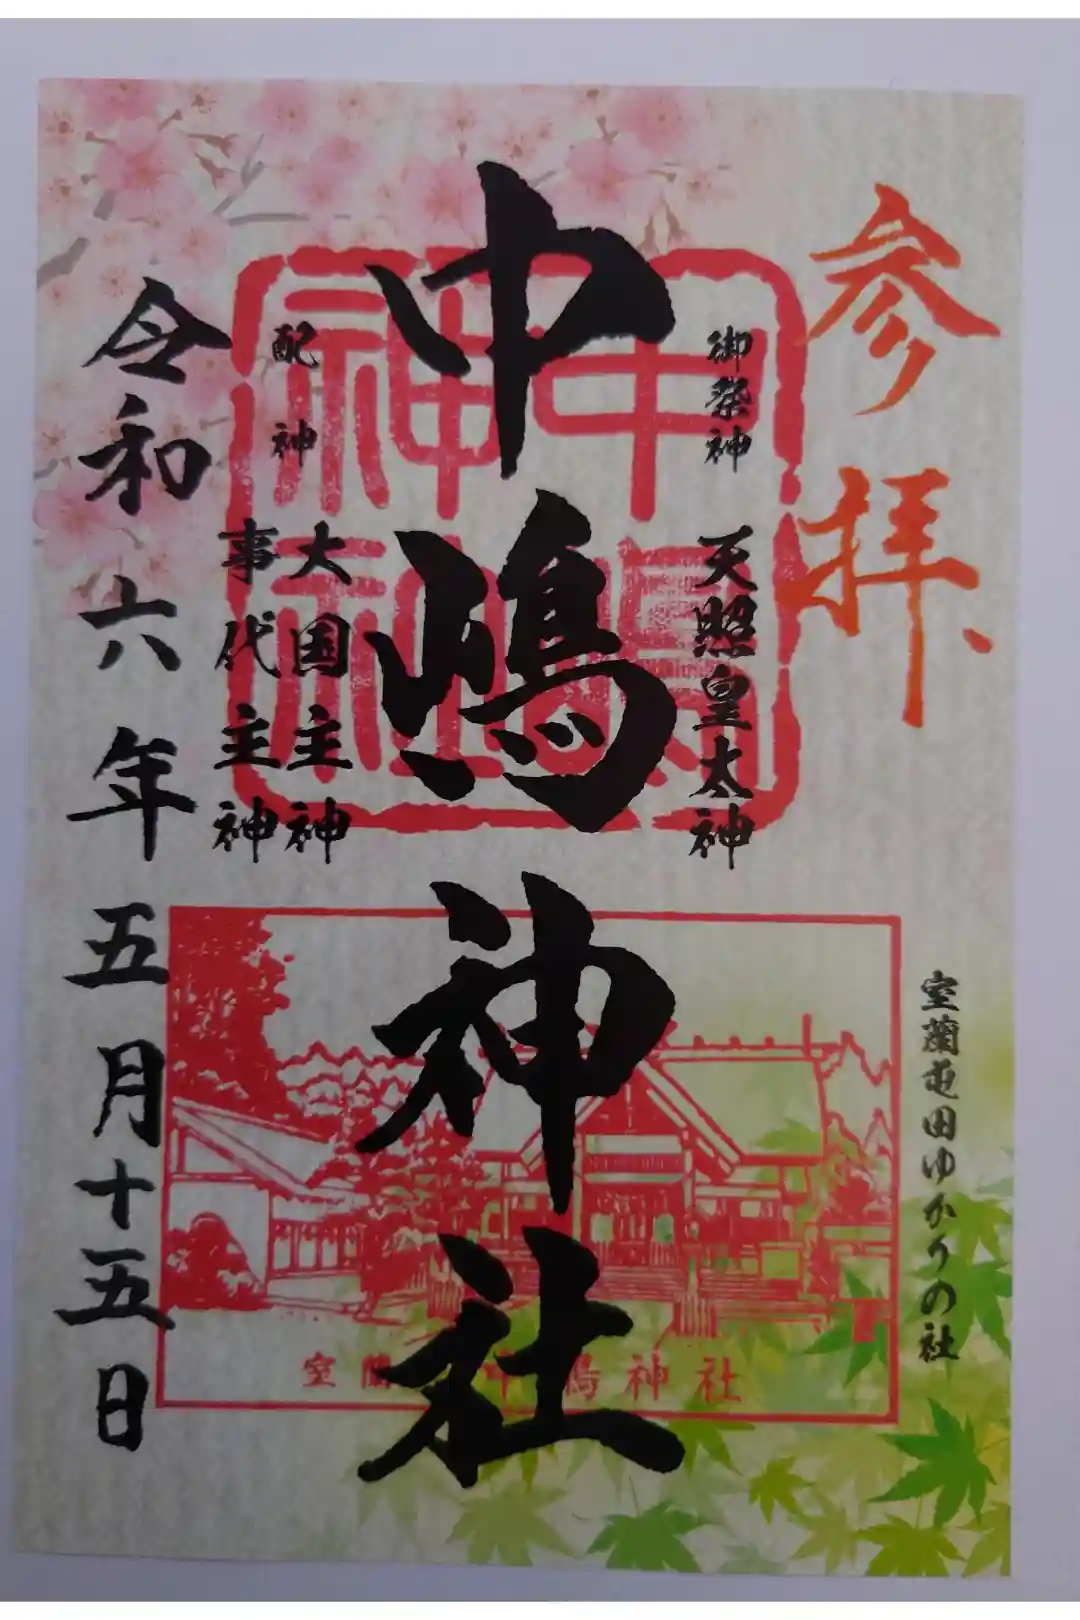 参拝、
室蘭屯田ゆかりの社
御祭神
天照皇太神
中嶋神社
中嶋神社
配神
大国主神
事代主神
令和六年五月十五日
室蘭 中嶋神社